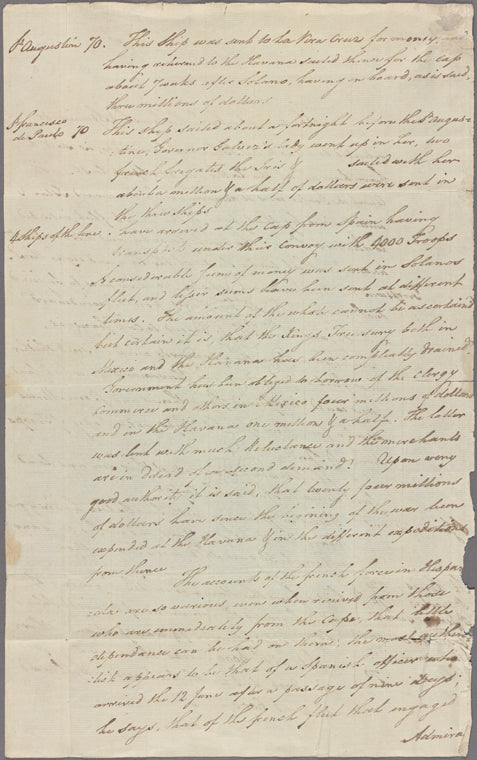 St Augustin 70. This Ship was sent to La Vera Cruz for money, and
having returned to the Havana sailed thence for the Cap
about 7 weeks after Solano, having on board, as is said,
three millions of dollars.
St francisco This Ship sailed about a fortnight before the St augus=
de Paulo 70 tine, Governor Galvez's lady went up in her, two
french frigates the Iris & sailed with her
about a million & a half of dollars were sent in
the three ships
4 Ships of the line. have arrived at the Cap from Spain having
transports under their Convoy with 4000 Troops
A considerable sum of money was sent in Solanos
fleet, and lesser sums have been sent at different
times. The amount of the whole cannot be ascertaind
but certain it is, that the Kings Treasury both in
Mexico and the Havana has been compleatly drained
Government has been obliged to borrow of the Clergy
Commerce and others in Mexico four millions of dollars
and in the Havana one million & a half. The latter
was lent with much Reluctance and the merchants
are in dread of a second demand. Upon very
good authority it is said, that twenty four millions
of dollars have since the begining of the war been
expended at the Havana & in the different expeditions
from thence
The accounts of the french force in Hispani
ola are so various, even when received from those
who are immediately from the Cape, that little
dependance can be had on them; the most authen
tick appears to be that of a Spanish officer who
arrived the 12 June after a passage of nine days;
he says, that of the french fleet that engaged
Admiral